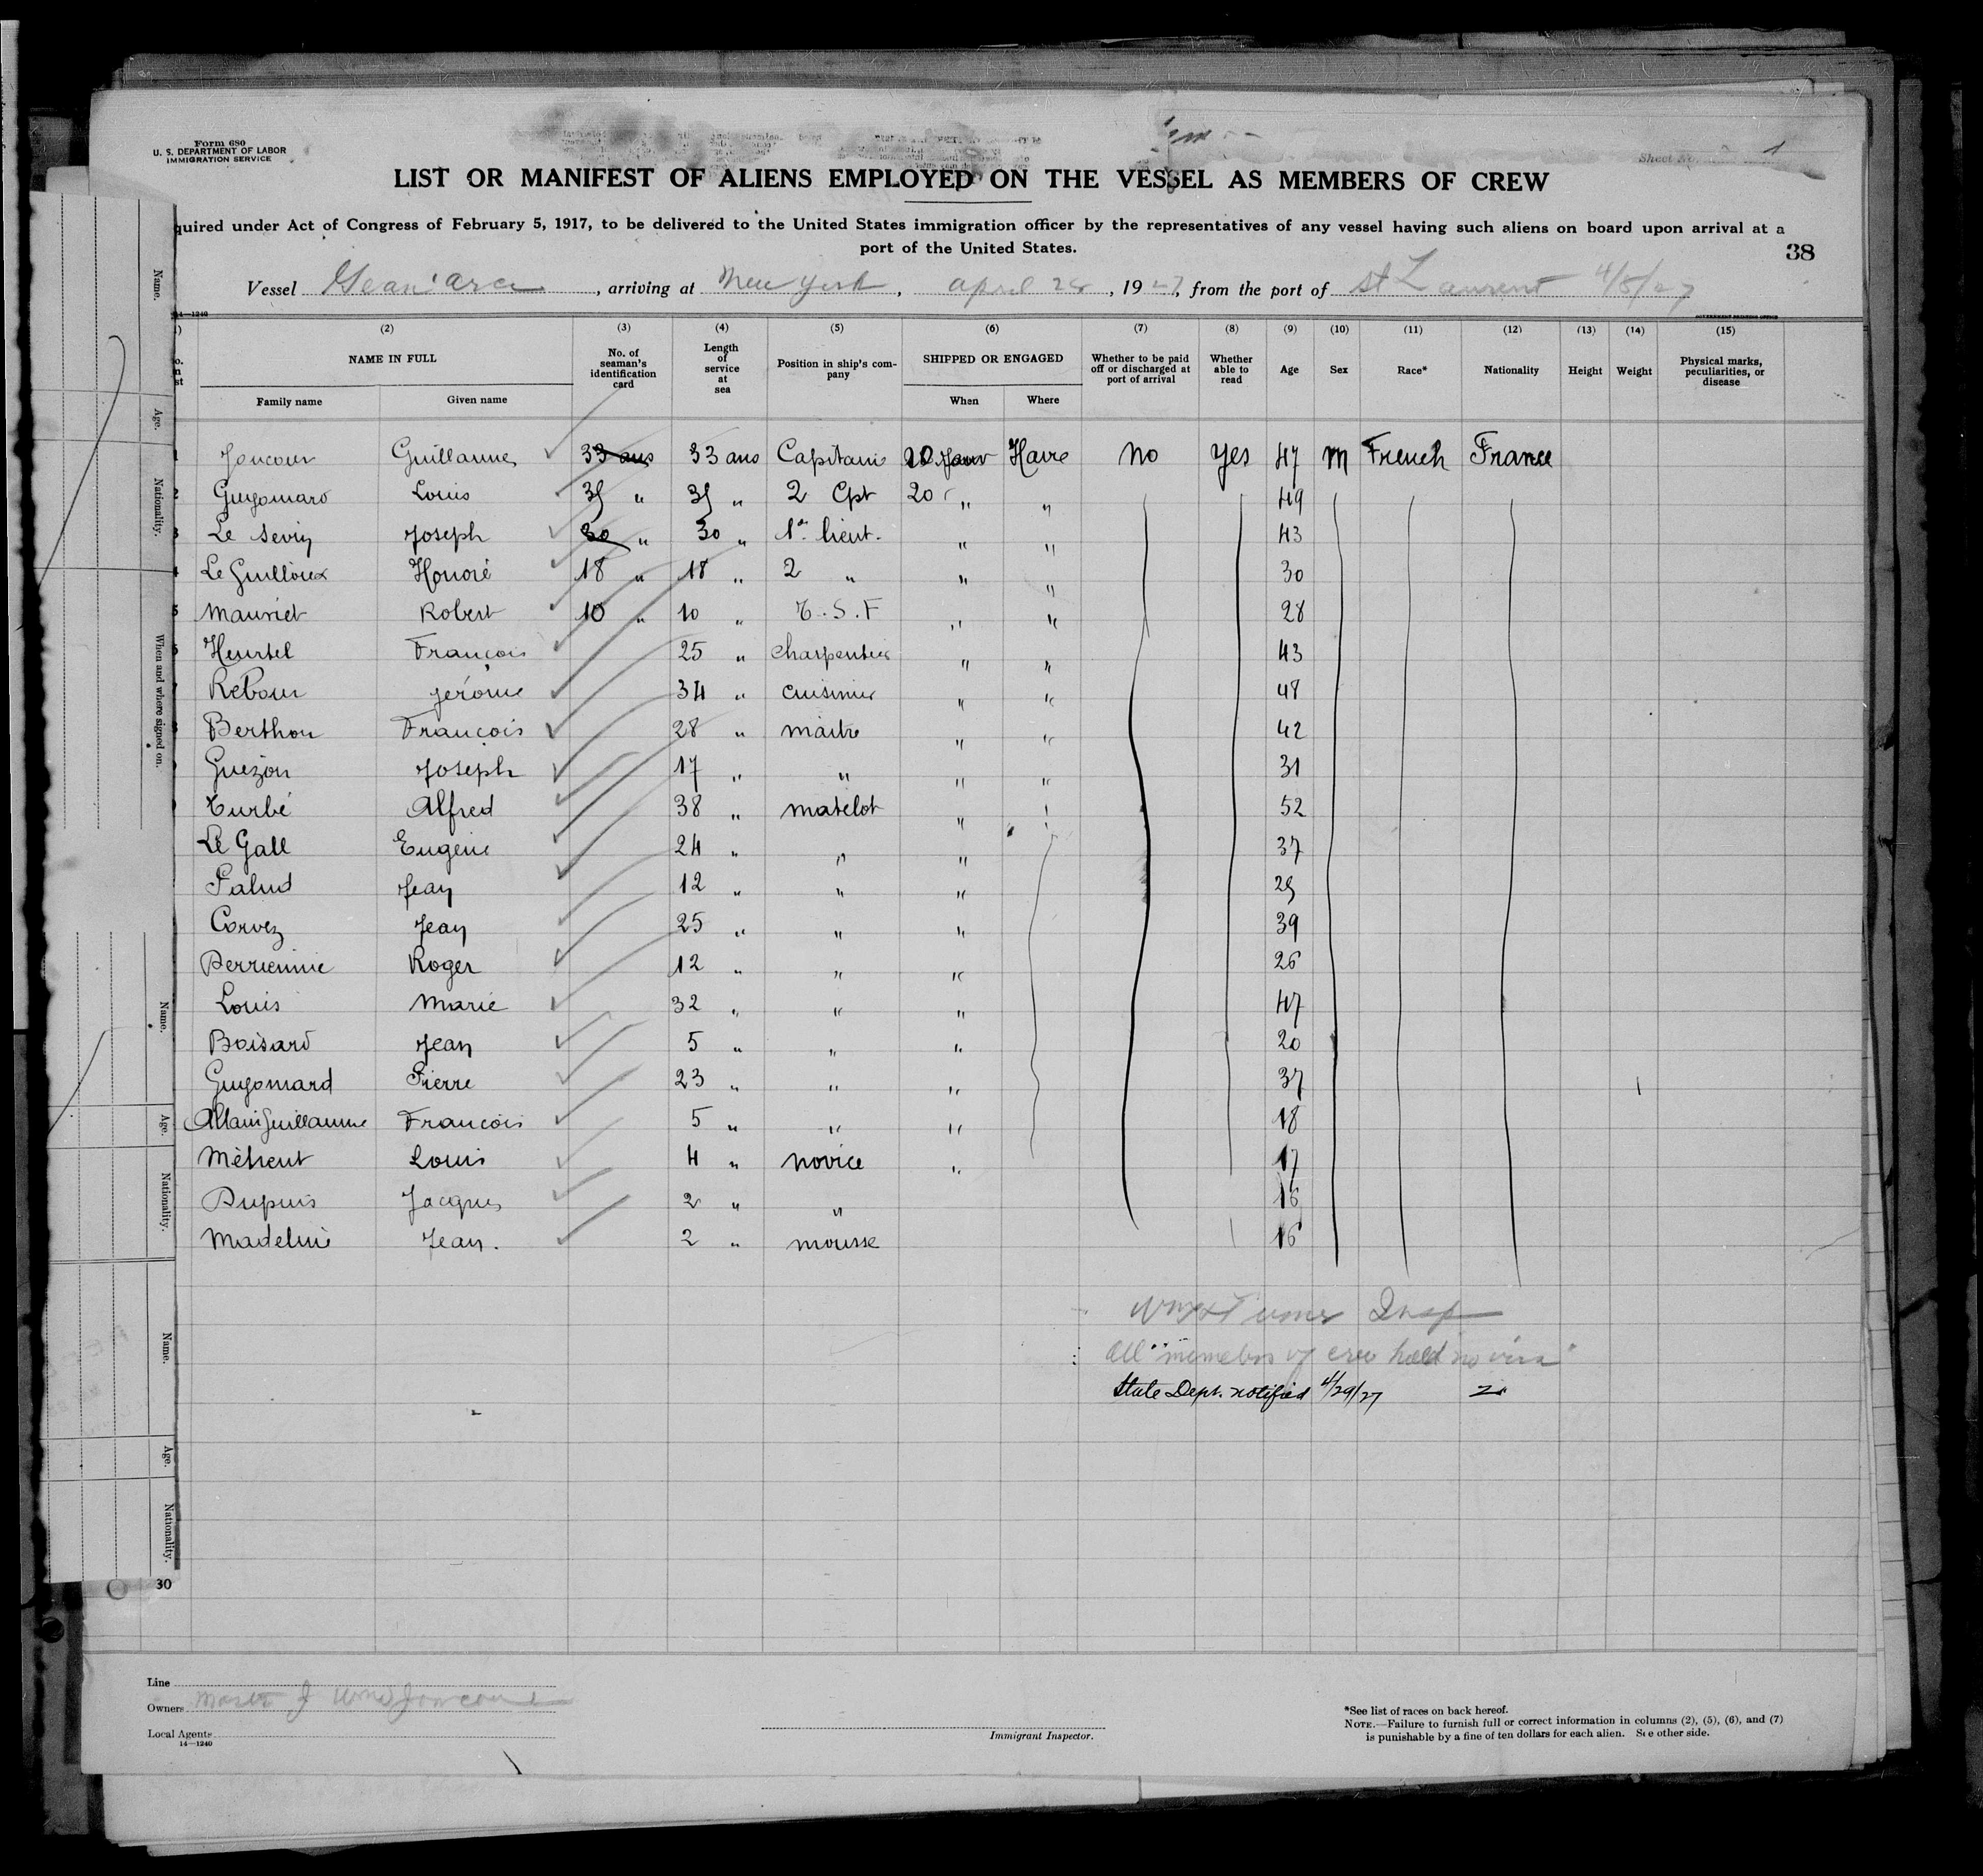 Form 680
U. S. DEPARTMENT OF LABOR
IMMIGRATION SERVICE
Sheet No. 1
LIST OR MANIFEST OF ALIENS EMPLOYED ON THE VESSEL AS MEMBERS OF CREW
quired under Act of Congress of February 5, 1917, to be delivered to the United States immigration officer by the representatives of any vessel having such aliens on board upon arrival at a
port of the United States.
38
Vessel , arriving at New York, April , 1927, from the port of St Laurent 4/5/27
14—1240
GOVERNMENT PRINTING OFFICE
(2) (3) (4) (5) (6) (7) (8) (9) (10) (11) (12) (13) (14) (15)
NAME IN FULL No. of seaman's identification card Length of service at sea Position in ship's company SHIPPED OR ENGAGED Whether to be paid off or discharged at port of arrival Whether able to read Age Sex Race* Nationality Height Weight Physical marks, peculiarities, or disease
Family name Given name When Where
1 Joncour Guillaume 33 ans 33 ans Capitaine 20 Janv Havre No Yes 47 M French France
2 Guyomard Louis 35 " 35 " 2 Cpt 20 " " 49
3 Le Joseph 30 " 30 " 1er lieut. " " 43
4 Le Guilloux Honoré 18 " 18 " 2 " " " 30
5 Mauriet Robert 10 " 10 " T.S.F " " 28
Heurtel François 25 " charpentier " " 43
Rebour Jérôme 34 " cuisinier " " 48
Berthou François 28 " maitre " " 42
Guezou Joseph 17 " " " " 31
Turbé Alfred 38 " matelot " " 52
Le Gall Eugène 24 " " " 37
Salud Jean 12 " " " 29
Corvez Jean 25 " " " 39
Perriennic Roger 12 " " " 26
Louis Marie 32 " " " 47
Boisard Jean 5 " " " 20
Guyomard Pierre 23 " " " 37
Allain Guillaume François 5 " " " 18
Méheut Louis 4 " novice " 17
Dupuis Jacques 2 " " 16
Madeline Jean. 2 " mousse 16
Turner Insp
All members of crew hold no visa
State Dept. notified 4/29/27
30
Name.
Age.
Nationality.
When and where signed on.
Name.
Age.
Nationality.
Name.
Age.
Nationality.
Line
Owners Master
Local Agents
14—1240
Immigrant Inspector.
*See list of races on back hereof.
NOTE.—Failure to furnish full or correct information in columns (2), (5), (6), and (7)
is punishable by a fine of ten dollars for each alien. See other side.